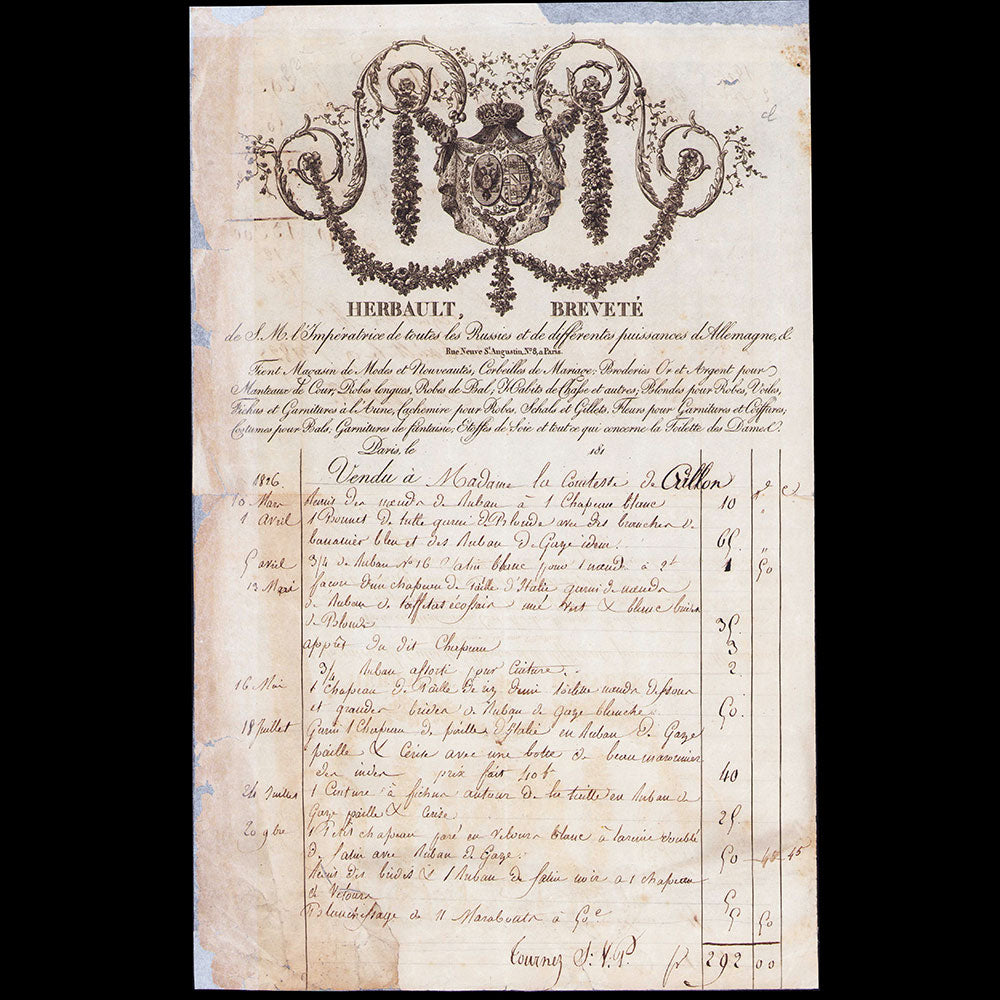 HERBAULT, BREVETÉ
de S. M. l'Impératrice de toutes les Russies et de différentes puissances d'Allemagne, &
Rue Neuve St. Augustin, No. 8, à Paris.
Tient Magasin de Modes et Nouveautés, Corbeilles de Mariage; Broderies Or et Argent pour
Manteaux de Cour, Robes longues, Robes de Bal, Habits de Chasse et autres; Blondes pour Robes, Voiles,
Fichus et Garnitures à l'Aune, Cachemire pour Robes, Schals et Gillets, Fleurs pour Garnitures et Coiffures;
Costumes pour Bals, Garnitures de fantaisie, Etoffes de Soie et tout ce qui concerne la Toilette des Dames.
Paris, le 181
1826. Vendu à Madame la Comtesse de Crillon
10 Mars Remis des nœuds de Ruban à 1 Chapeau blanc 10 "
1 Avril 1 Bonnet de tulle garni de Blonde avec des branches de
bananier bleu et des Ruban de Gaze idem. 65. "
5 avril 3/4 de Ruban No 16 Satin blanc pour 1 nœud à 2f 1 50
13 Mai façon d'un chapeau de Paille d'Italie garni de nœuds
de Ruban de taffetas écossais vert & blanc brides
de Blonde 35.
apprêt du dit Chapeau 3
3/4 Ruban assorti pour Ceinture. 2
16 Mai 1 Chapeau de Paille de riz demi toilette nœuds dessous
et grandes brides de Ruban de gaze blanche. 50.
18 Juillet Garni 1 Chapeau de paille d'Italie en Ruban de Gaze
paille & Cerise avec une botte de beau maronnier
des indes prix fait 40f 40
24 Juillet 1 Ceinture à fichu autour de la taille en Ruban de
Gaze paille & Cerise 25.
20 9bre 1 Petit chapeau paré en Velours blanc à doublé
de Satin avec Ruban de Gaze. 50 48 45
Remis des brides & 1 Ruban de Satin noir à 1 chapeau
de Velours 5
Blanchissage de 11 Marabouts à 50c 5 50
Tournez S. V. P. fr 292 00